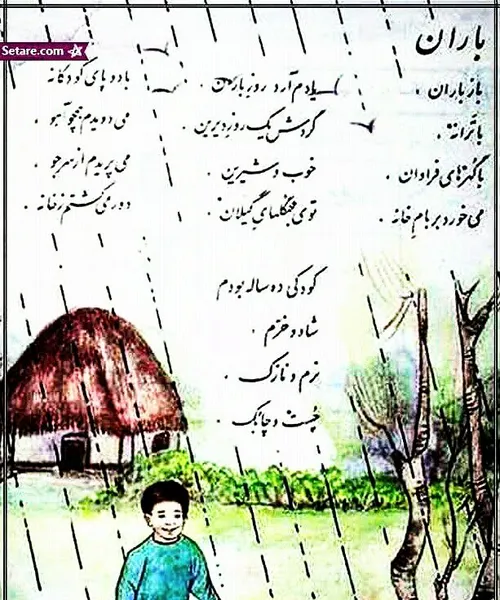 Setare.com
باران
باز باران ،
با ترانه ،
با گهرهای فراوان ،
می خورد بر بام خانه .
یادم آرد روز باران ،
گردش یک روز دیرین ،
خوب و شیرین ،
توی جنگلهای گیلان .
کودکی ده ساله بودم
شاد و خرّم ،
نرم و نازک ،
چُست و چابک .
با دو پای کودکانه
می دویدم همچو آهو ،
می پریدم از سر جو ،
دور می گشتم ز خانه .